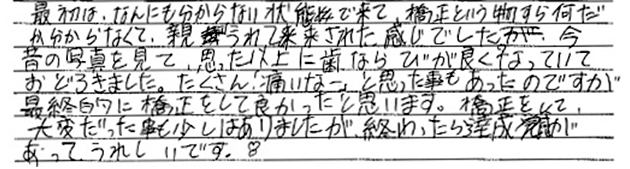 最初は、なんにも分からない状態で来て、橋正という物すら何だ
か分からなくて、親に連れて来された感じでしたが、今
昔の写真を見て、思った以上に歯ならびが良くなっていて
おどろきました。たくさん「痛いなー」と思った事もあったのですが
最終的に橋正をして良かったと思います。橋正をして、
大変だった事も少しはありましたが、終わったら達成感が
あって、うれしいです。